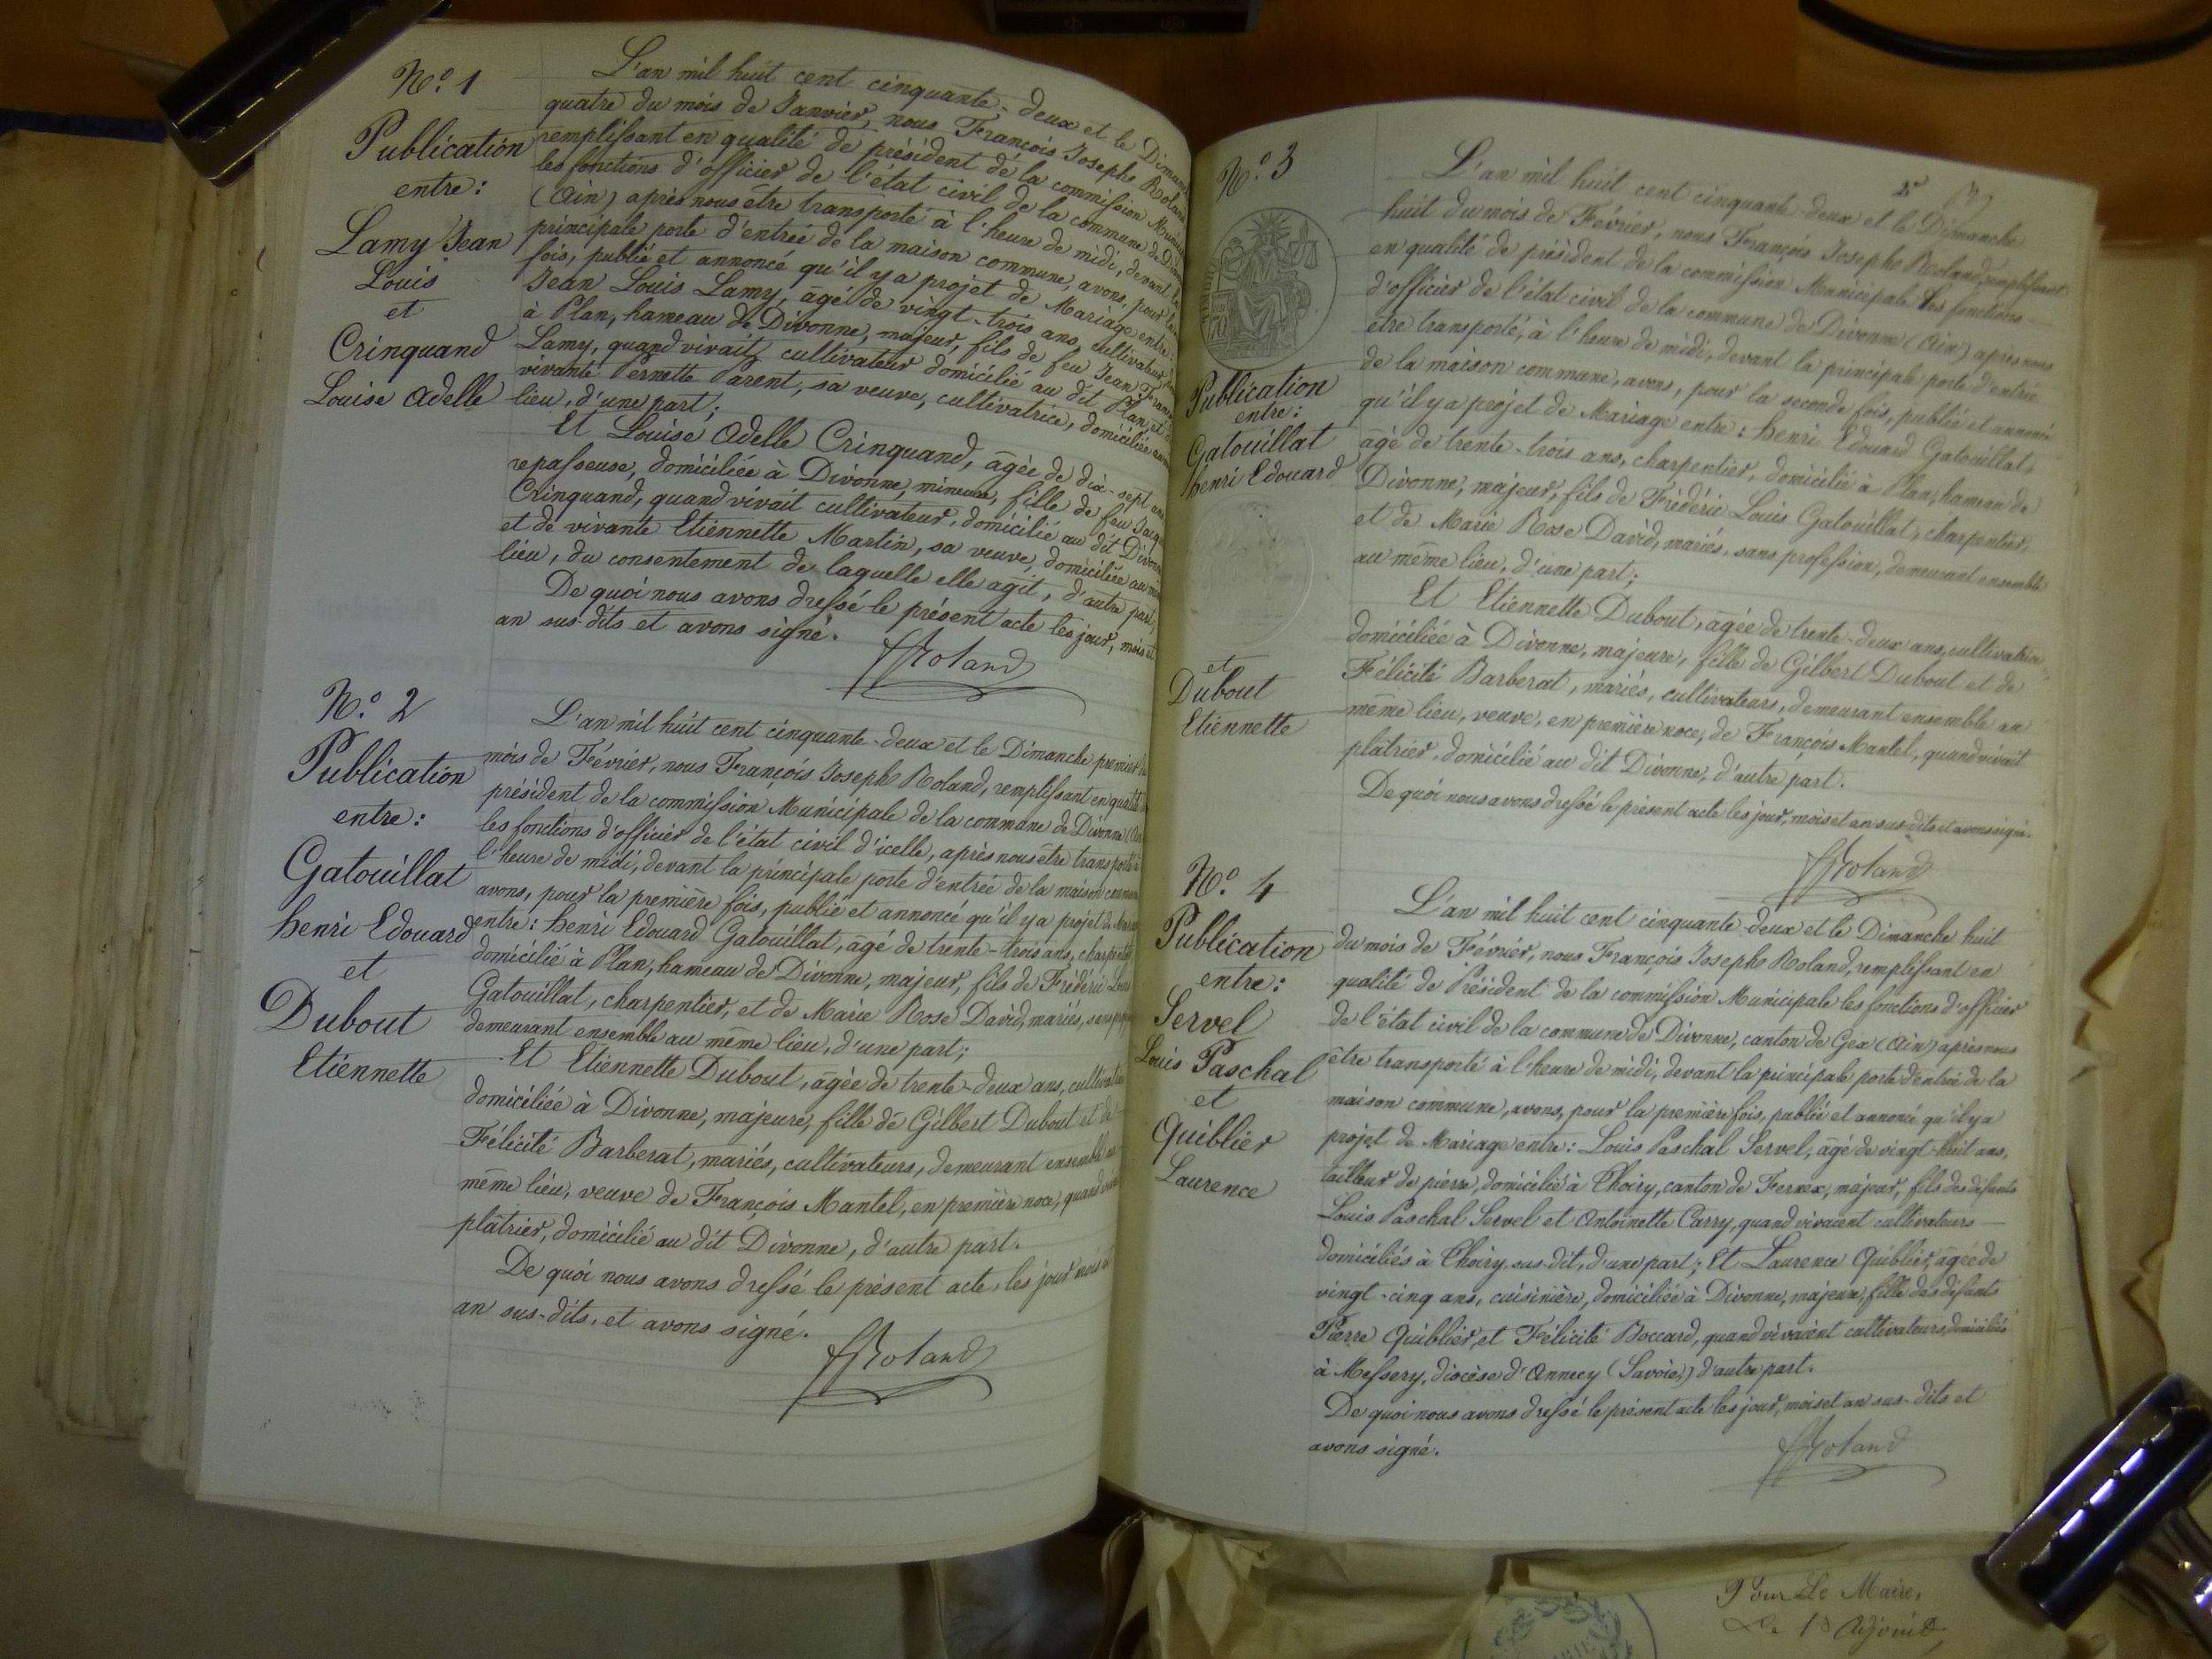 N.º 1
Publication
entre:
Lamy Jean
Louis
et
Crinquand
Louise Adelle
L'an mil huit cent cinquante-deux et le
quatre du mois de Janvier, nous François Joseph
remplissant en qualité de président de la commission
les fonctions d'officier de l'état civil de la commune de
(Ain) après nous être transporté à l'heure de midi, devant la
principale porte d'entrée de la maison commune, avons, pour la
fois, publié et annoncé qu'il y a projet de Mariage entre
Jean Louis Lamy, âgé de vingt-trois ans, cultivateur
à Plan, hameau de Divonne, majeur, fils de feu Jean
Lamy, quand vivait, cultivateur domicilié au dit Plan, et de
vivante Pernette Parent, sa veuve, cultivatrice, domiciliée
lieu, d'une part;
Et Louise Adelle Crinquand, âgée de dix-sept ans
repasseuse, domiciliée à Divonne, mineure, fille de feu
Crinquand, quand vivait cultivateur, domicilié au dit Divonne
et de vivante Etiennette Martin, sa veuve, domiciliée au
lieu, du consentement de laquelle elle agit, d'autre part,
De quoi nous avons dressé le présent acte les jour, mois et
an sus-dits et avons signé.
Roland
N.º 2
Publication
entre:
Gatouillat
henri Edouard
et
Dubout
Etiennette
L'an mil huit cent cinquante-deux et le Dimanche premier
mois de Février, nous François Joseph Roland, remplissant en qualité
président de la commission Municipale de la commune de Divonne
les fonctions d'officier de l'état civil d'icelle, après nous être transporté à
l'heure de midi, devant la principale porte d'entrée de la maison commune
avons, pour la première fois, publié et annoncé qu'il y a projet de
entre: henri Edouard Gatouillat, âgé de trente-trois ans, charpentier
domicilié à Plan, hameau de Divonne, majeur, fils de Frédéric Louis
Gatouillat, charpentier, et de Marie Rose David, mariés,
demeurant ensemble au même lieu, d'une part;
Et Etiennette Dubout, âgée de trente-deux ans,
domiciliée à Divonne, majeure, fille de Gilbert Dubout et de
Félicité Barberat, mariés, cultivateurs, demeurant ensemble au
même lieu, veuve de François Mantel, en première noce, quand
plâtrier, domicilié au dit Divonne, d'autre part.
De quoi nous avons dressé le présent acte, les jour mois et
an sus-dits, et avons signé.
Roland
N.º 3
Publication
entre:
Gatouillat
henri Edouard
et
Dubout
Etiennette
L'an mil huit cent cinquante-deux et le Dimanche
huit du mois de Février, nous François Joseph Roland, remplissant
en qualité de président de la commission Municipale les fonctions
d'officier de l'état civil de la commune de Divonne (Ain) après nous
être transporté, à l'heure de midi, devant la principale porte d'entrée
de la maison commune, avons, pour la seconde fois, publié et annoncé
qu'il y a projet de Mariage entre: henri Edouard Gatouillat,
âgé de trente-trois ans, charpentier, domicilié à Plan, hameau de
Divonne, majeur, fils de Frédéric Louis Gatouillat, charpentier,
et de Marie Rose David, mariés, sans profession, demeurant ensemble
au même lieu, d'une part;
Et Etiennette Dubout, âgée de trente-deux ans, cultivatrice,
domiciliée à Divonne, majeure, fille de Gilbert Dubout et de
Félicité Barberat, mariés, cultivateurs, demeurant ensemble au
même lieu, veuve, en première noce, de François Mantel, quand vivait
plâtrier, domicilié au dit Divonne, d'autre part.
De quoi nous avons dressé le présent acte les jour, mois et an sus-dits et avons signé.
Roland
N.º 4
Publication
entre:
Servel
Louis Paschal
et
Quiblier
Laurence
L'an mil huit cent cinquante-deux et le Dimanche huit
du mois de Février, nous François Joseph Roland, remplissant en
qualité de Président de la commission Municipale les fonctions d'officier
de l'état civil de la commune de Divonne, canton de Gex (Ain) après nous
être transporté à l'heure de midi, devant la principale porte d'entrée de la
maison commune, avons, pour la première fois, publié et annoncé qu'il y a
projet de Mariage entre: Louis Paschal Servel, âgé de vingt-huit ans,
tailleur de pierre, domicilié à Thoiry, canton de Fernex, majeur, fils des défunts
Louis Paschal Servel et Antoinette Carry, quand vivaient cultivateurs
domiciliés à Thoiry sus-dit, d'une part; Et Laurence Quiblier, âgée de
vingt-cinq ans, cuisinière, domiciliée à Divonne, majeure, fille des défunts
Pierre Quiblier, et Félicité Boccard, quand vivaient cultivateurs, domiciliés
à Messery, diocèse d'Annecy (Savoie) d'autre part.
De quoi nous avons dressé le présent acte les jour, mois et an sus-dits et
avons signé.
Roland
Pour Le Maire,
Le 1er Adjoint,